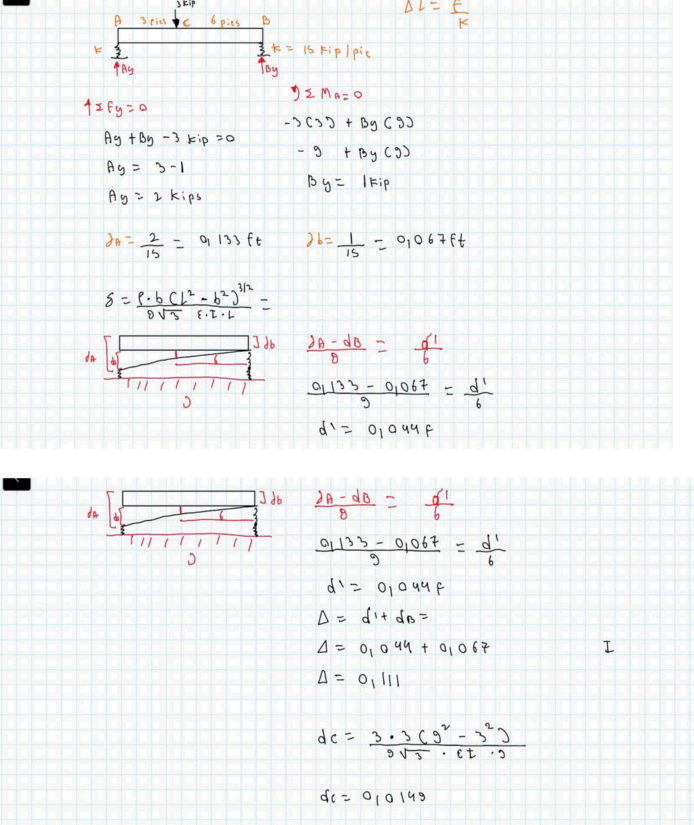 3 kip
ΔL = F/K
A 3 pies C 6 pies B
K K = 15 kip/pie
Ay By
↑ΣFy = 0
Ay + By - 3 kip = 0
Ay = 3 - 1
Ay = 2 kips
ΣMA = 0
-3(3) + By(9)
-9 + By(9)
By = 1 kip
∂A = 2/15 = 0,133 ft
∂b = 1/15 = 0,067 ft
δ = P·b(L² - b²)^3/2 / 9√3 E·I·L =
dA d' 6 ]db
9
∂A - dB / 9 = d'/6
0,133 - 0,067 / 9 = d'/6
d' = 0,044 f
dA d' 6 ]db
9
∂A - dB / 9 = d'/6
0,133 - 0,067 / 9 = d'/6
d' = 0,044 f
Δ = d' + dB =
Δ = 0,044 + 0,067
I
Δ = 0,111
dc = 3·3(9² - 3²) / 9√3 · EI · 9
dc = 0,0149